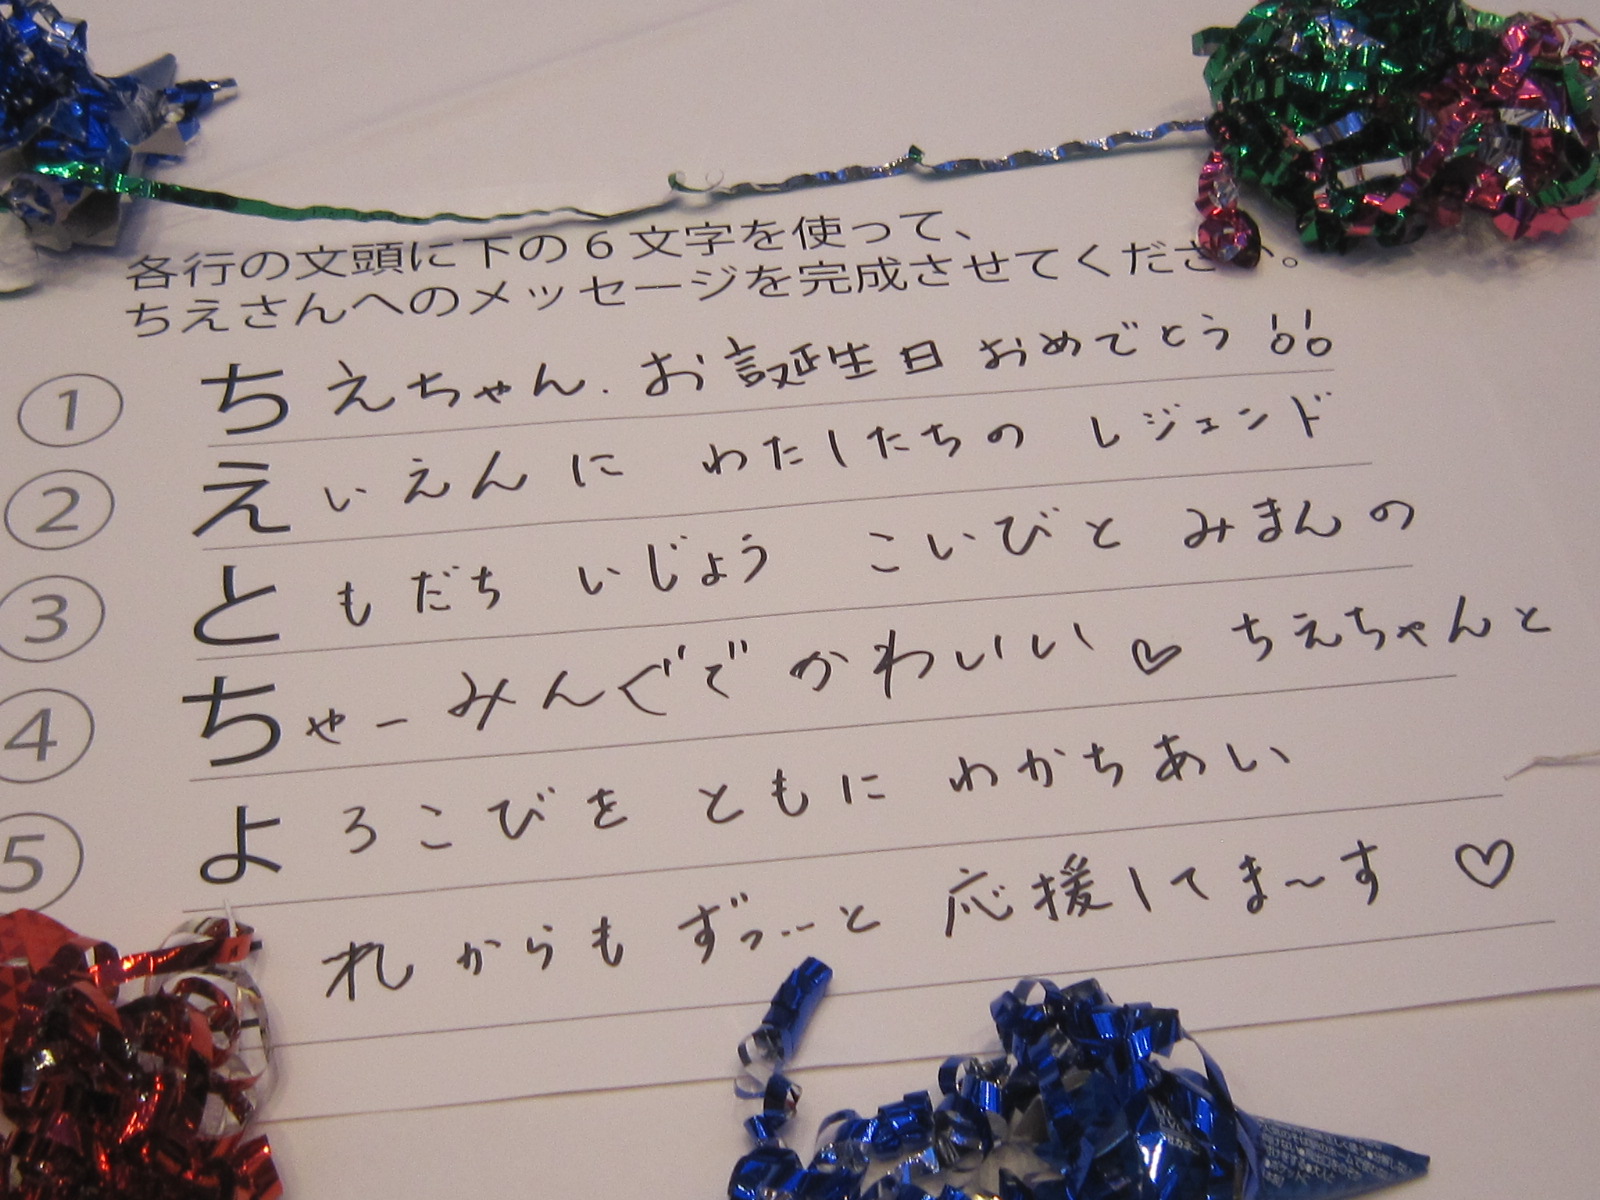 各行の文頭に下の6文字を使って、
ちえさんへのメッセージを完成させてください。
① ちえちゃん、お誕生日おめでとう!!
② えいえんに わたしたちの レジェンド
③ ともだち いじょう こいびと みまんの
④ ちゃーみんぐで かわいい♡ ちえちゃんと
⑤ よろこびを ともに わかちあい
れからも ずっーと 応援してま〜す ♡